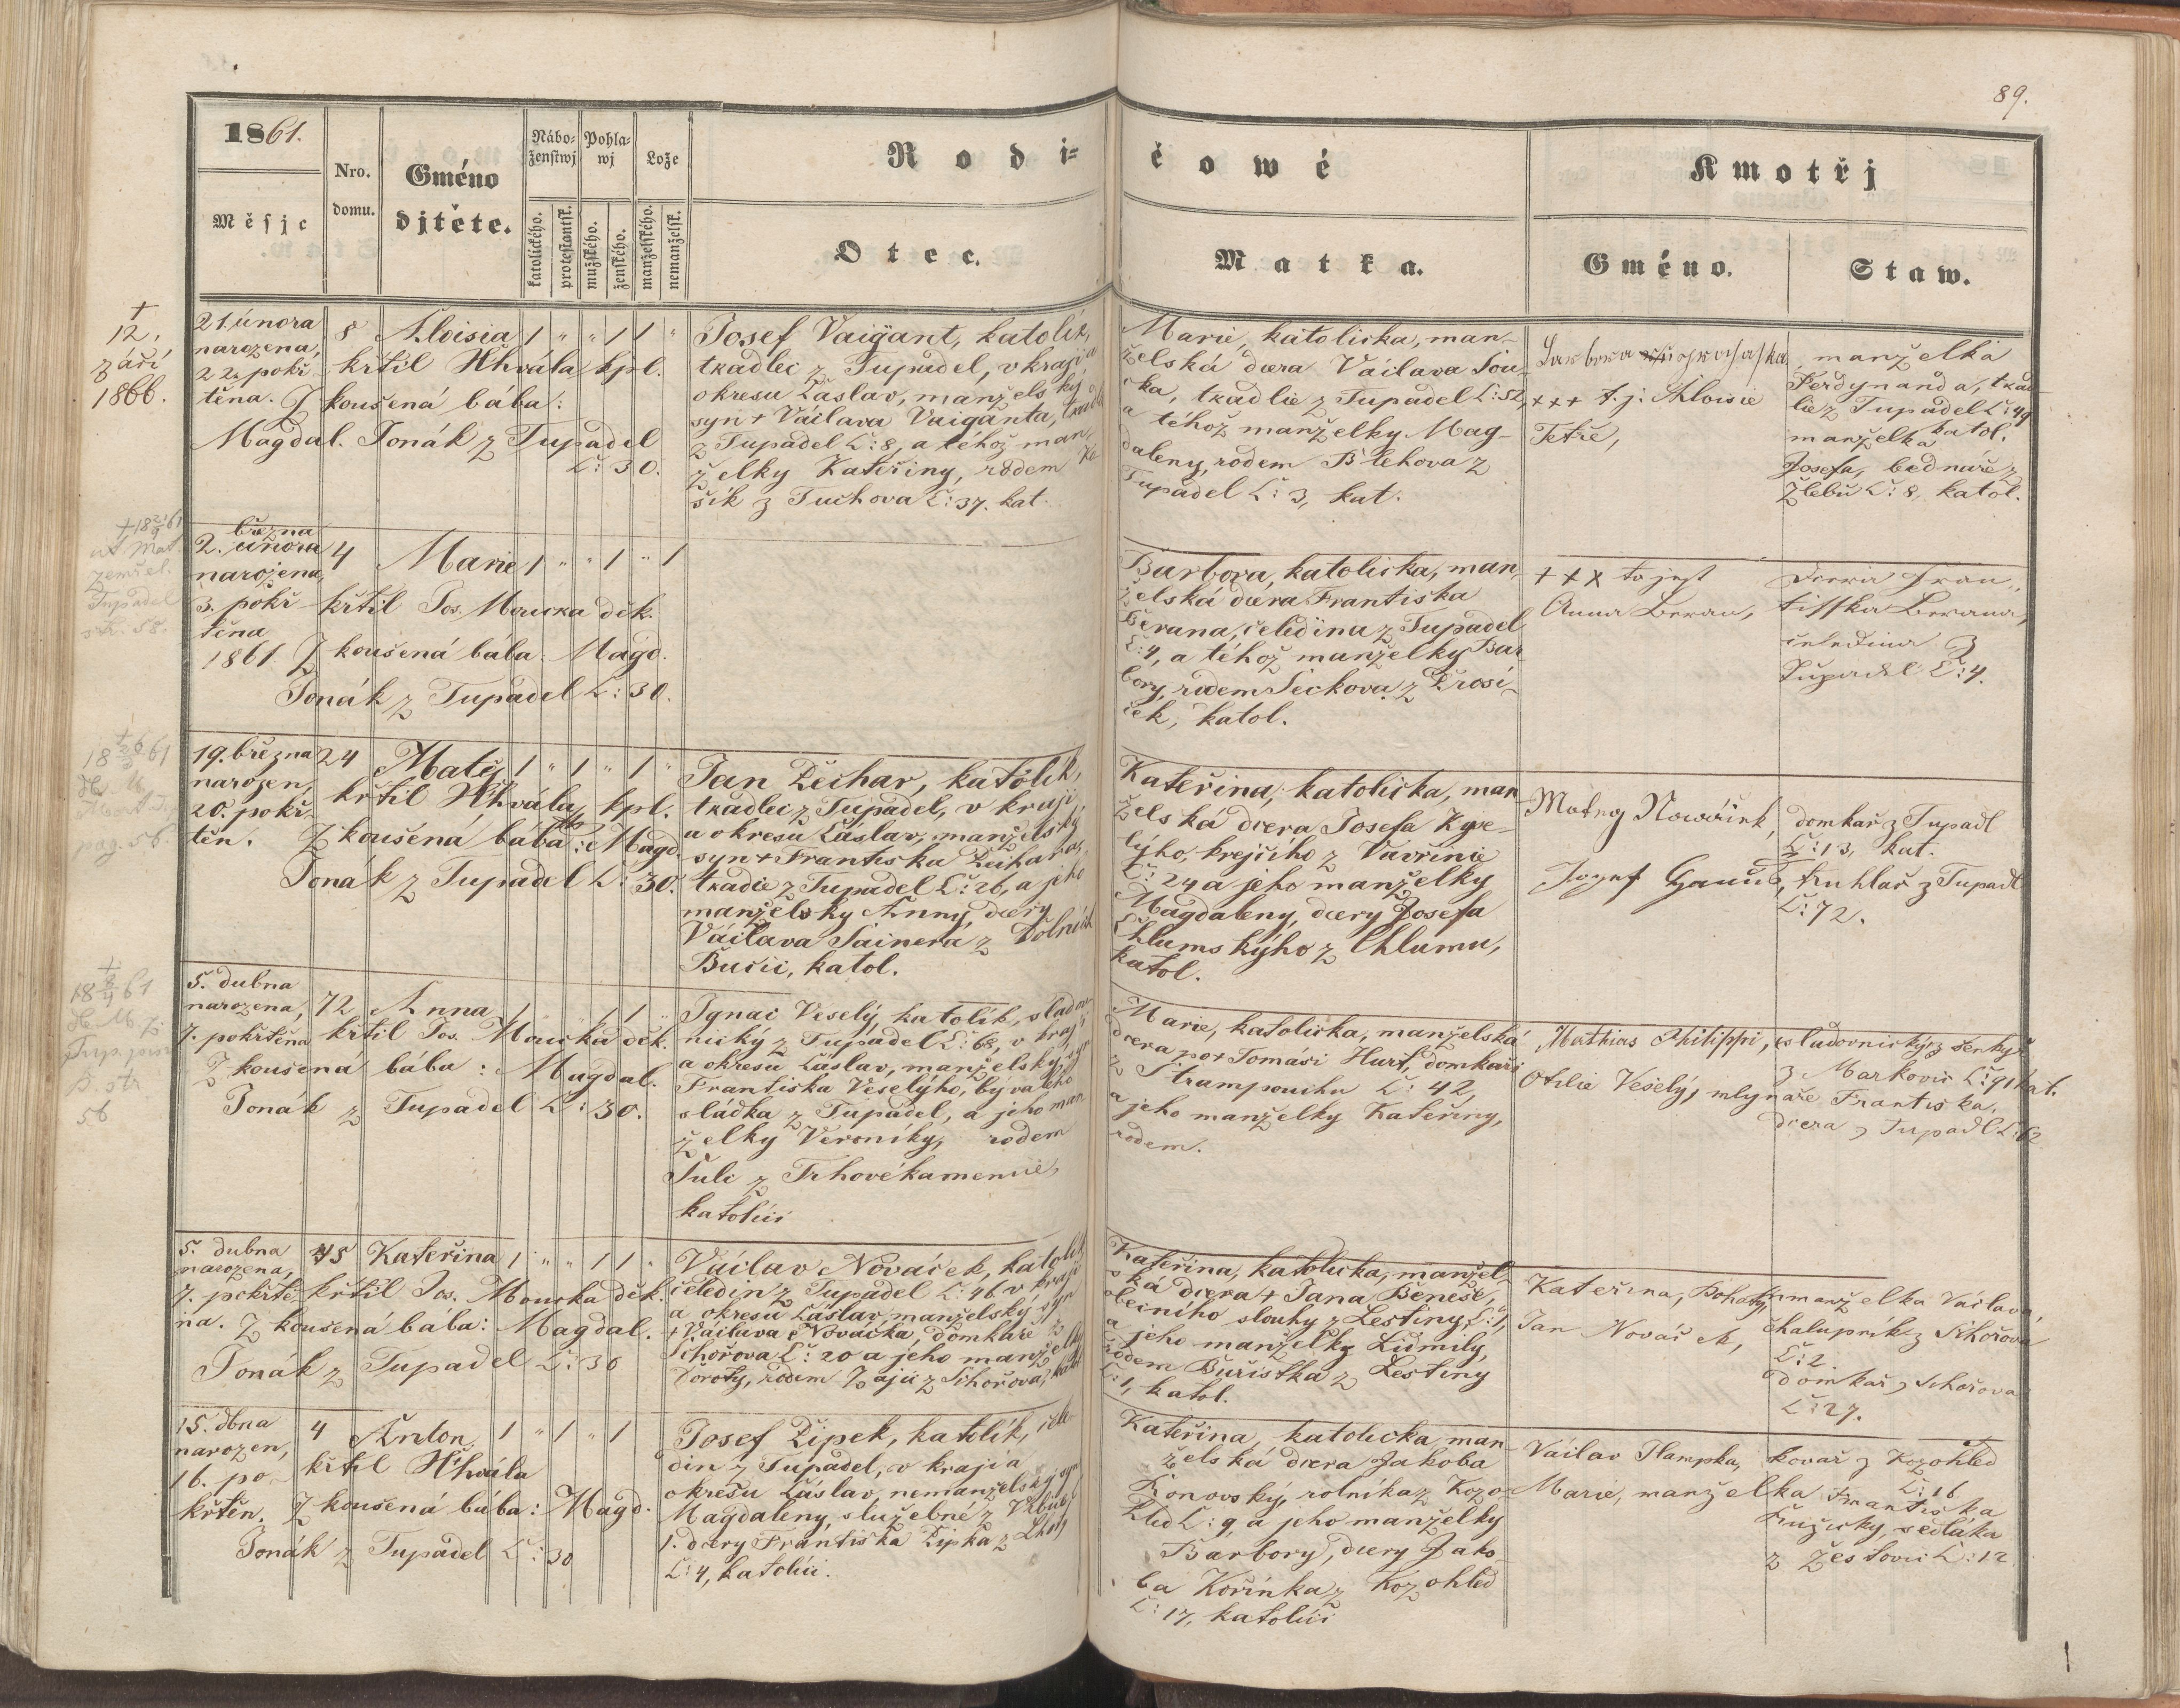 89.
1861.
Měsjc
Nro. domu.
Gméno djtěte.
Nábo-ženstwj
katolického.
protestantsk.
Pohla-wj
mužského.
ženského.
Lože
manželského.
nemanželsk.
Rodičowé
Otec.
Matka.
Kmotřj
Gméno.
Staw.
†
12.
září
1866.
21. února
narozena,
22. pokř
těna.
8 Aloisia 1 " " 1 1 "
křtil Hhvála kpl.
Zkoušená bába:
Magdal. Tonák z Tupadel
Č: 30.
Josef Vaigant, katolík,
tkadlec z Tupadel, v kraji a
okresu Čáslav, manželský
syn † Václava Vaiganta, tkadl
z Tupadel Č: 8, a téhož man-
želky Kateřiny, rodem
šík z Tuchova Č: 37. kat.
Marie, katolička, man-
želská dcera Václava Sou-
ka, tkadlce z Tupadel Č: 52,
a téhož manželky Mag-
daleny, rodem Blehova z
Tupadel Č: 3, kat.
Barbora
+++ t. j. Aloisie
Tetře,
manželka
Ferdynanda, tkad
lce z Tupadel Č: 49
katol.
manželka
Josefa, bednáře z
Žlebů Č: 8, katol.
března
2. února
narozena,
3. pokř
těna
1861
4 Marie 1 " " 1 " 1
křtil Jos. Moucka děk.
Zkoušená bába: Magd.
Tonák z Tupadel Č: 30.
Barbora, katolička, man-
želská dcera Františka
Berana, čeledína z Tupadel
Č: 4, a téhož manželky Bar
bory, rodem Seckova z Drosi-
ček, katol.
+++ to jest
Anna Beran,
dcera Fran-
tiška Berana,
čeledína z
Tupadel Č: 4.
19. března
narozen,
20. pokř-
těn.
24 Matěj 1 " 1 " 1 "
křtil Hhvála, kpl.
Zkoušená bába: Magd.
Tonák z Tupadel Č: 30.
pag. 56.
Jan Žíchar, katolík,
tkadlec z Tupadel, v kraji
a okresu Čáslav, manželský
syn † Františka Žíchara,
tkadlce z Tupadel Č: 26, a jeho
manželky Anny, dcery
Václava Šainera z Dolních
Bučic, katol.
Kateřina, katolička, man
želská dcera Josefa Kyse-
lýho, krejčího z Vavřinic
Č: 24 a jeho manželky
Magdaleny, dcery Josefa
Chlumskýho z Chlumu,
katol.
Matěj Nowáček,
domkař z Tupadl
Č: 13, kat.
Jozef
truhlář z Tupadl
Č: 72.
5. dubna
narozena,
7. pokřtěna
72 Anna 1 " " 1 1 "
křtil Jos. Moucka děk.
Zkoušená bába: Magdal.
Tonák z Tupadel Č: 30.
56
Ignac Veselý, katolík, sladov
nický z Tupadel Č: 62, v kraji
a okresu Čáslav, manželský syn
Františka Veselýho, bývalého
sládka z Tupadel, a jeho man
želky Veroniky, rodem
Šulc z Trhovékamenice,
katolíci
Marie, katolička, manželská
dcera po † Tomaši Hurt, domkáři
z Štrampouchu Č: 42,
a jeho manželky Kateřiny,
rodem.
Mathias Philippi, sladovnický z šenkýř
z Markovic Č: 91 kat.
Otilie Veselý, mlynáře Františka,
dcera z Tupadl Č: 62
5. dubna
narozena,
7. pokřtě-
na.
45 Kateřina 1 " " 1 1 "
křtil Jos. Moucka děk.
Zkoušená bába: Magdal.
Tonák z Tupadel Č: 30
Václav Nováček, katolík
čeledín z Tupadel Č: 46 v kraji
a okresu Čáslav, manželský syn
† Václava Nováčka, domkáře z
Schořova Č: 20 a jeho manželky
Doroty, rodem Zajíc z Schořova, katol
Kateřina, katolička, manžel-
ská dcera † Jana Beneše,
obecního slouhy z Leštiny, Č: 1,
a jeho manželky Lidmily,
rodem Buřistka z Leštiny
Č: 1, katol.
Kateřina, Bohatý, manželka Václava,
chalupník z Schořova
Č: 2.
Jan Nováček,
domkař z Schořova
Č: 27.
15. dbna
narozen,
16. po-
křtěn.
4 Anton 1 " 1 " 1
křtil Hhvála
Zkoušená bába: Magd.
Tonák z Tupadel Č: 30
Josef Žipek, katolík, čele
dín z Tupadel, v kraji a
okresu Čáslav, nemanželský syn
Magdaleny, služebné z
1. dcery Františka Žipka z Lhoty
Č: 4, katolíci.
Kateřina, katolička man
želská dcera Jakoba
Ronovský, rolníka z Kozo-
hled Č: 9, a jeho manželky
Barbory, dcery Jako-
ba Kořínka z Kozohled
Č: 17, katolíci
Václav Hampka,
kovář z Kozohled
Č: 16
Marie, manželka Františka
Ružický, sedláka
z Žestovic Č: 12